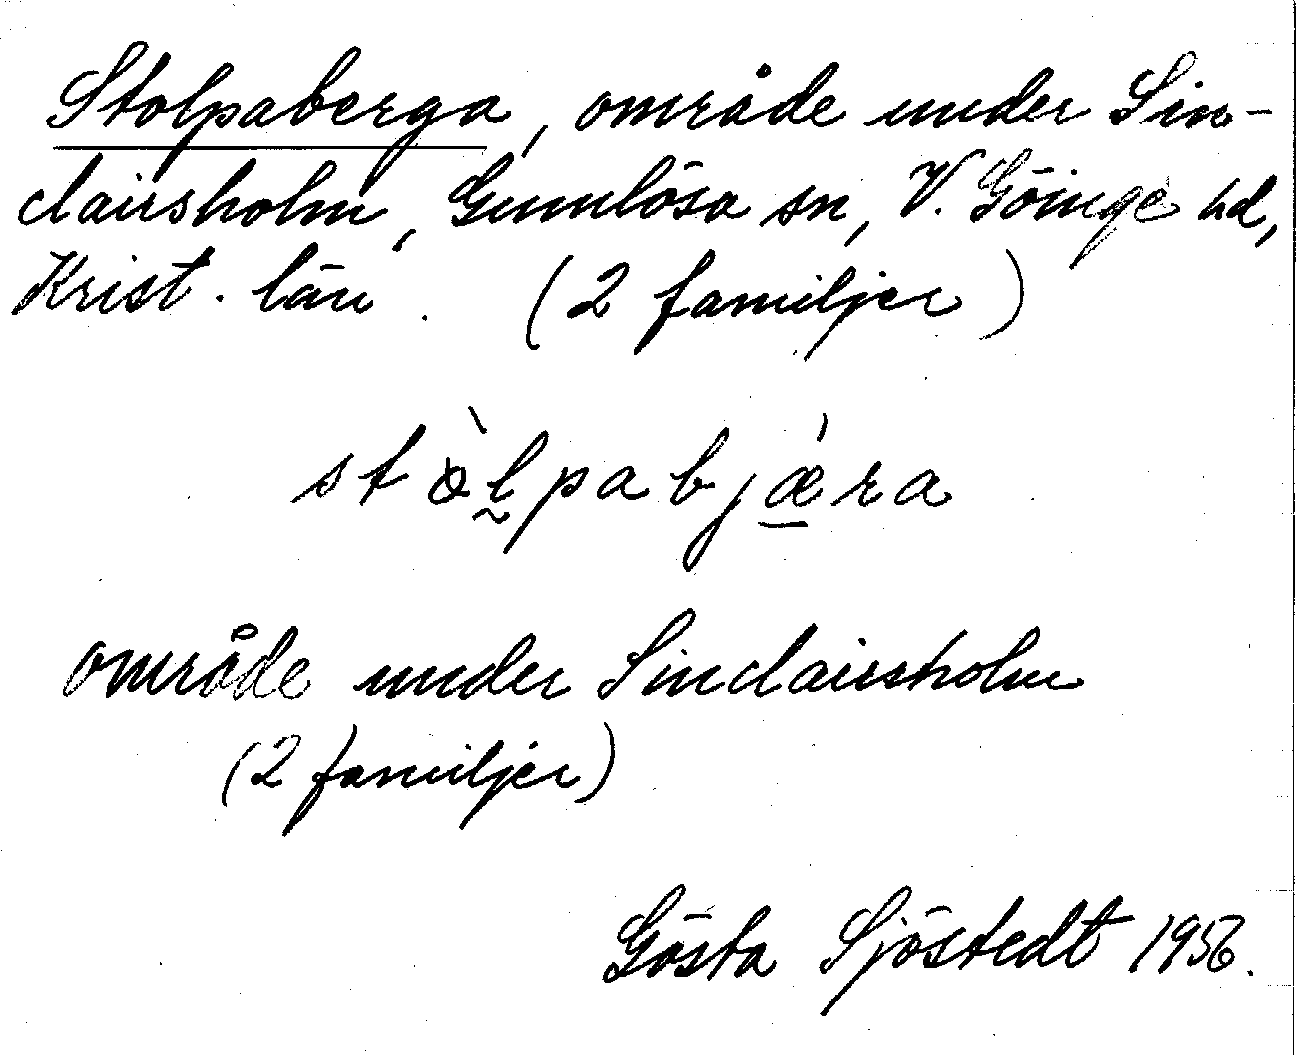 Stolpaberga, område under Sin-
clairsholm, Gumlösa sn, V. Göinge hd,
Krist. län. (2 familjer)
stò̀l̰pabjǽ̱ra
område under Sinclairsholm
(2 familjer)
Gösta Sjöstedt 1956.